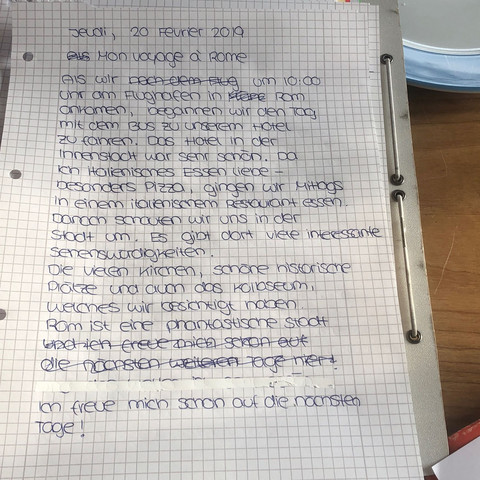 Jeudi, 20 Février 2019
Als Mon voyage à Rome
Als wir nach dem Flug um 10:00
Uhr am Flughafen in Rom
ankamen, begannen wir den Tag
mit dem Bus zu unserem Hotel
zu fahren. Das Hotel in der
Innenstadt war sehr schön. Da
ich italienisches Essen liebe -
besonders Pizza, gingen wir Mittags
in einem italienischem Restaurant essen.
Danach schauten wir uns in der
Stadt um. Es gibt dort viele interessante
Sehenswürdigkeiten.
Die vielen Kirchen, schöne historische
Plätze und auch das Kolosseum,
welches wir besichtigt haben.
Rom ist eine phantastische Stadt
und ich freue mich schon auf
die nächsten weiteren Tage hier!
Ich freue mich schon auf die nächsten
Tage!